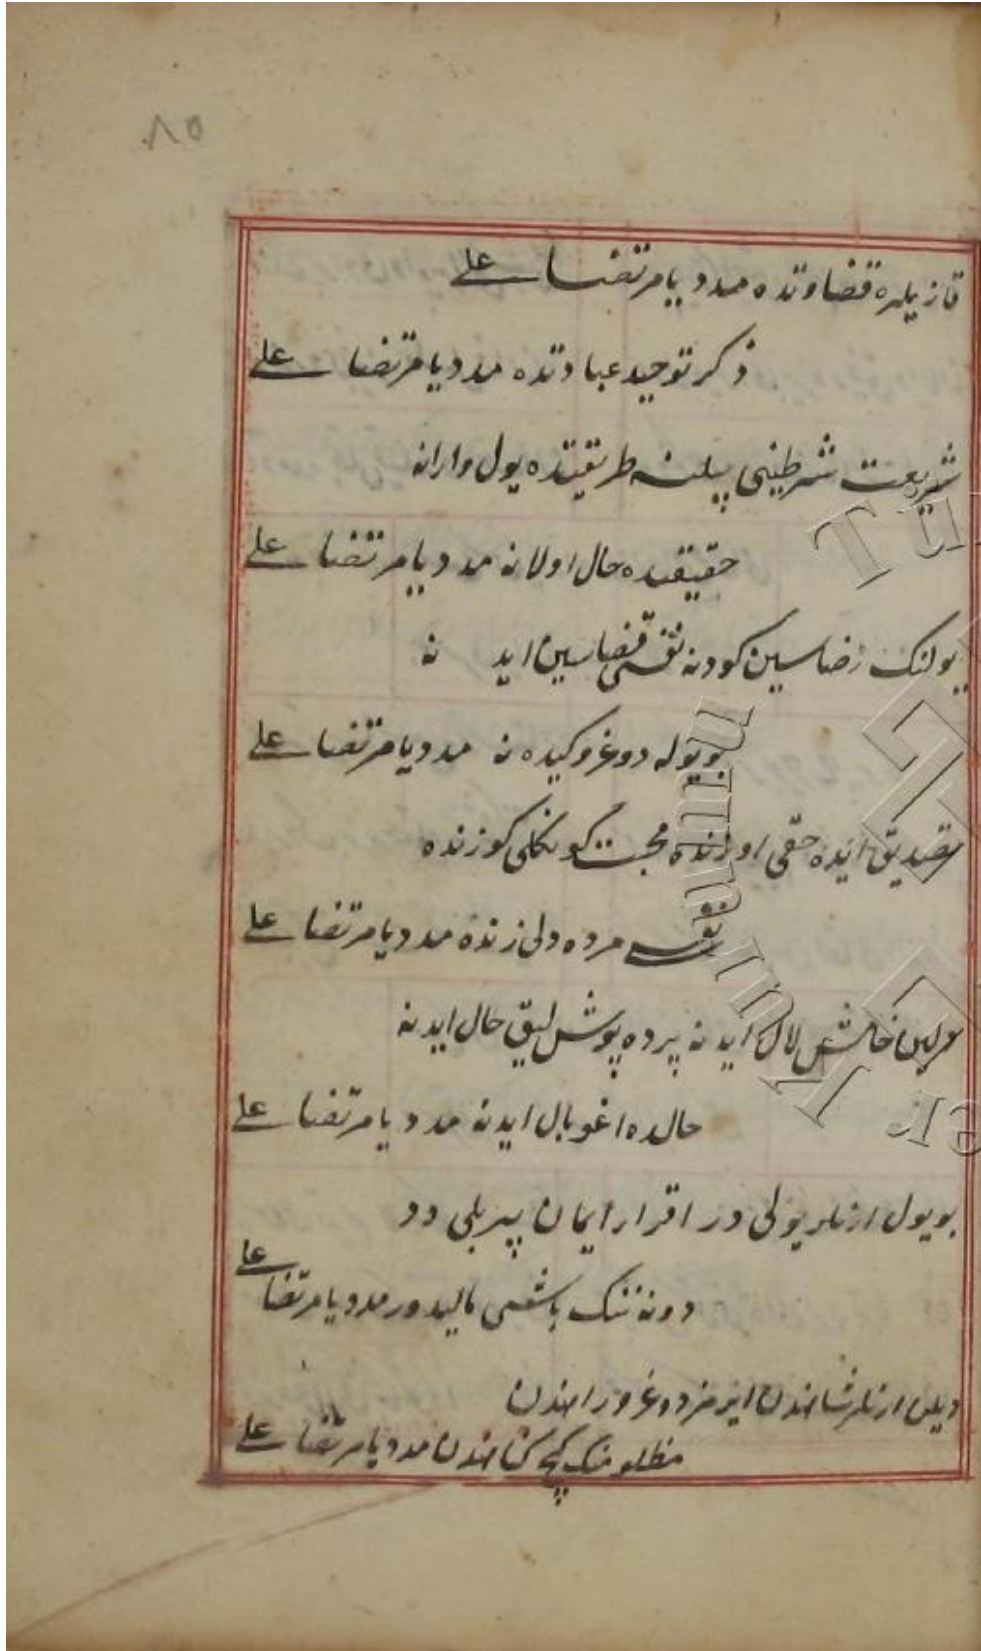 ٨٥
قازیلره قضاوتده مدد یا مرتضا علی
ذکر توحید عبادتده مدد یا مرتضا علی
شریعت شرطینی بیلنه طریقتده یول وارانه
حقیقتده حال اولانه مدد یا مرتضا علی
یولنک رضاسین کودنه نفسی قضاسین ایدنه
بو یوله دوغرو کیده نه مدد یا مرتضا علی
تصدیق ایده حقی اوزنده محبت کوکلی کوزنده
نفسی مرده دلی زنده مدد یا مرتضا علی
لال ایدنه پرده پوش لیق حال ایدنه
حالده اغو بال ایدنه مدد یا مرتضا علی
بو یول ارنلر یولی در اقرار ایمان بیر بلی دد
دونه ننک باشمی مالیدور مدد یا مرتضا علی
دیلن ارنلر شاهندن ایرمز دوغرو راهندن
مظلومنک کچ کناهندن مدد یا مرتضا علی